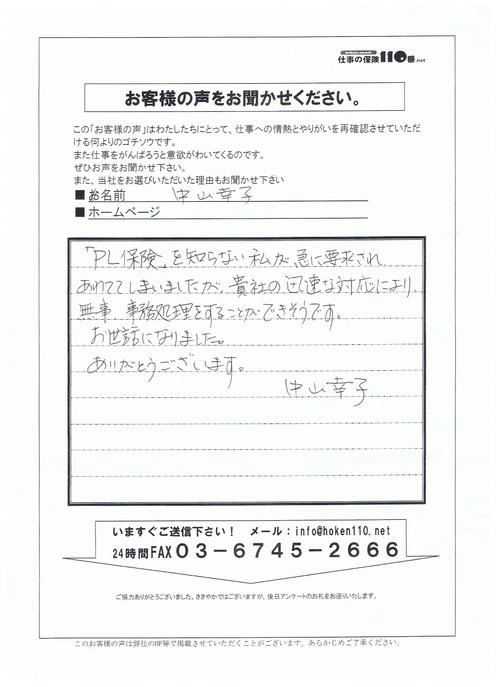 仕事の保険110番.net
お客様の声をお聞かせください。
この「お客様の声」はわたしたちにとって、仕事への情熱とやりがいを再確認させていただ
ける何よりのゴチソウです。
また仕事をがんばろうと意欲がわいてくるのです。
ぜひお声をお聞かせ下さい。
また、当社をお選びいただいた理由もお聞かせ下さい
■お名前 中山幸子
■ホームページ
「PL保険」を知らない私が急に要求され
あわててしまいましたが、貴社の迅速な対応により
無事、事務処理をすることができそうです。
お世話になりました。
ありがとうございます。
中山幸子
いますぐご送信下さい! メール:info@hoken110.net
24時間FAX03-6745-2666
ご協力ありがとうございました。ささやかではございますが、後日アンケートのお礼をお送りいたします。
このお客様の声は弊社のHP等で掲載させていただくことがございます。あらかじめご了承ください。